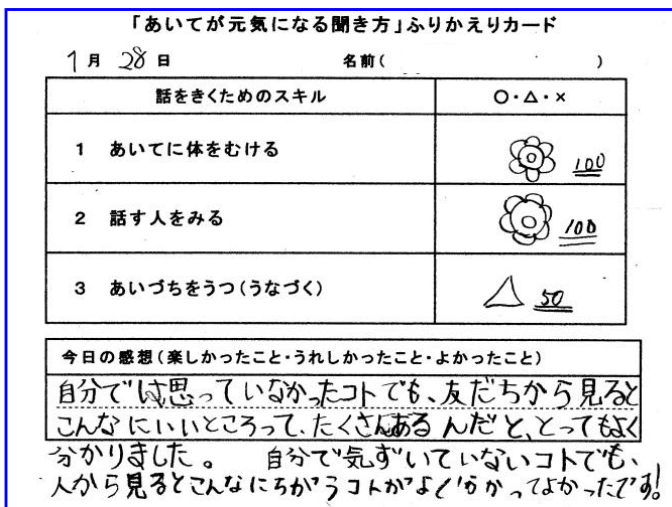 「あいてが元気になる聞き方」ふりかえりカード
1月 28日 名前( )
話をきくためのスキル ○・△・×
1 あいてに体をむける 100
2 話す人をみる 100
3 あいづちをうつ(うなづく) △ 50
今日の感想(楽しかったこと・うれしかったこと・よかったこと)
自分では思っていなかったコトでも、友だちから見ると
こんなにいいところって、たくさんあるんだと、とってもよく
分かりました。 自分で気ずいていないコトでも、
人から見るとこんなにちがうコトがよく分かってよかったです!